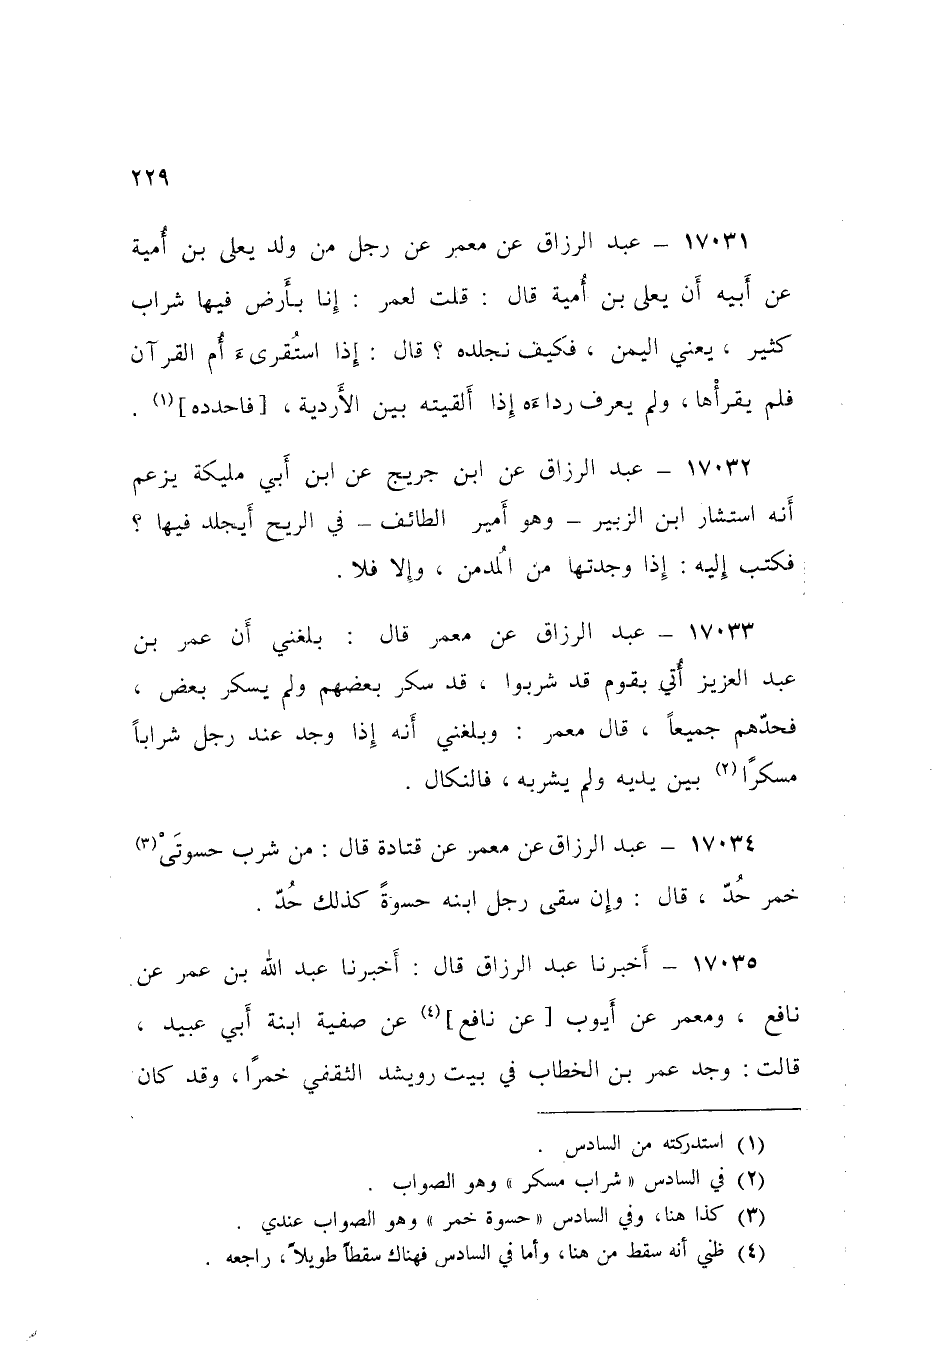 ٢٢٩
١٧٠٣١ – عبد الرزاق عن معمر عن رجل من ولد يعلى بن أُمية
عن أَبيه أَن يعلى بن أُمية قال : قلت لعمر : إِنا بأَرض فيها شراب
كثير ، يعني اليمن ، فكيف نجلده ؟ قال : إِذا استُقرىءَ أُم القرآن
فلم يقرأْها ، ولم يعرف رداءَه إِذا أَلقيته بين الأَردية ، [فاحدده](١) .
١٧٠٣٢ – عبد الرزاق عن ابن جريج عن ابن أَبي مليكة يزعم
أَنه استشار ابن الزبير – وهو أَمير الطائف – في الريح أَيجلد فيها ؟
فكتب إِليه : إِذا وجدتها من المُدمن ، وإِلا فلا .
١٧٠٣٣ – عبد الرزاق عن معمر قال : بلغني أَن عمر بن
عبد العزيز أُتي بقوم قد شربوا ، قد سكر بعضهم ولم يسكر بعض ،
فحدّهم جميعاً ، قال معمر : وبلغني أَنه إِذا وجد عند رجل شراباً
مسكرًا(٢) بين يديه ولم يشربه ، فالنكال .
١٧٠٣٤ – عبد الرزاق عن معمر عن قتادة قال : من شرب حسوتَيْ(٣)
خمر حُدّ ، قال : وإِن سقى رجل ابنه حسوةً كذلك حُدّ .
١٧٠٣٥ – أَخبرنا عبد الرزاق قال : أَخبرنا عبد الله بن عمر عن
نافع ، ومعمر عن أَيوب [عن نافع](٤) عن صفية ابنة أَبي عبيد ،
قالت : وجد عمر بن الخطاب في بيت رويشد الثقفي خمرًا ، وقد كان
(١) استدركته من السادس .
(٢) في السادس «شراب مسكر» وهو الصواب .
(٣) كذا هنا، وفي السادس «حسوة خمر» وهو الصواب عندي .
(٤) ظني أنه سقط من هنا، وأما في السادس فهناك سقطاً طويلاً، راجعه .